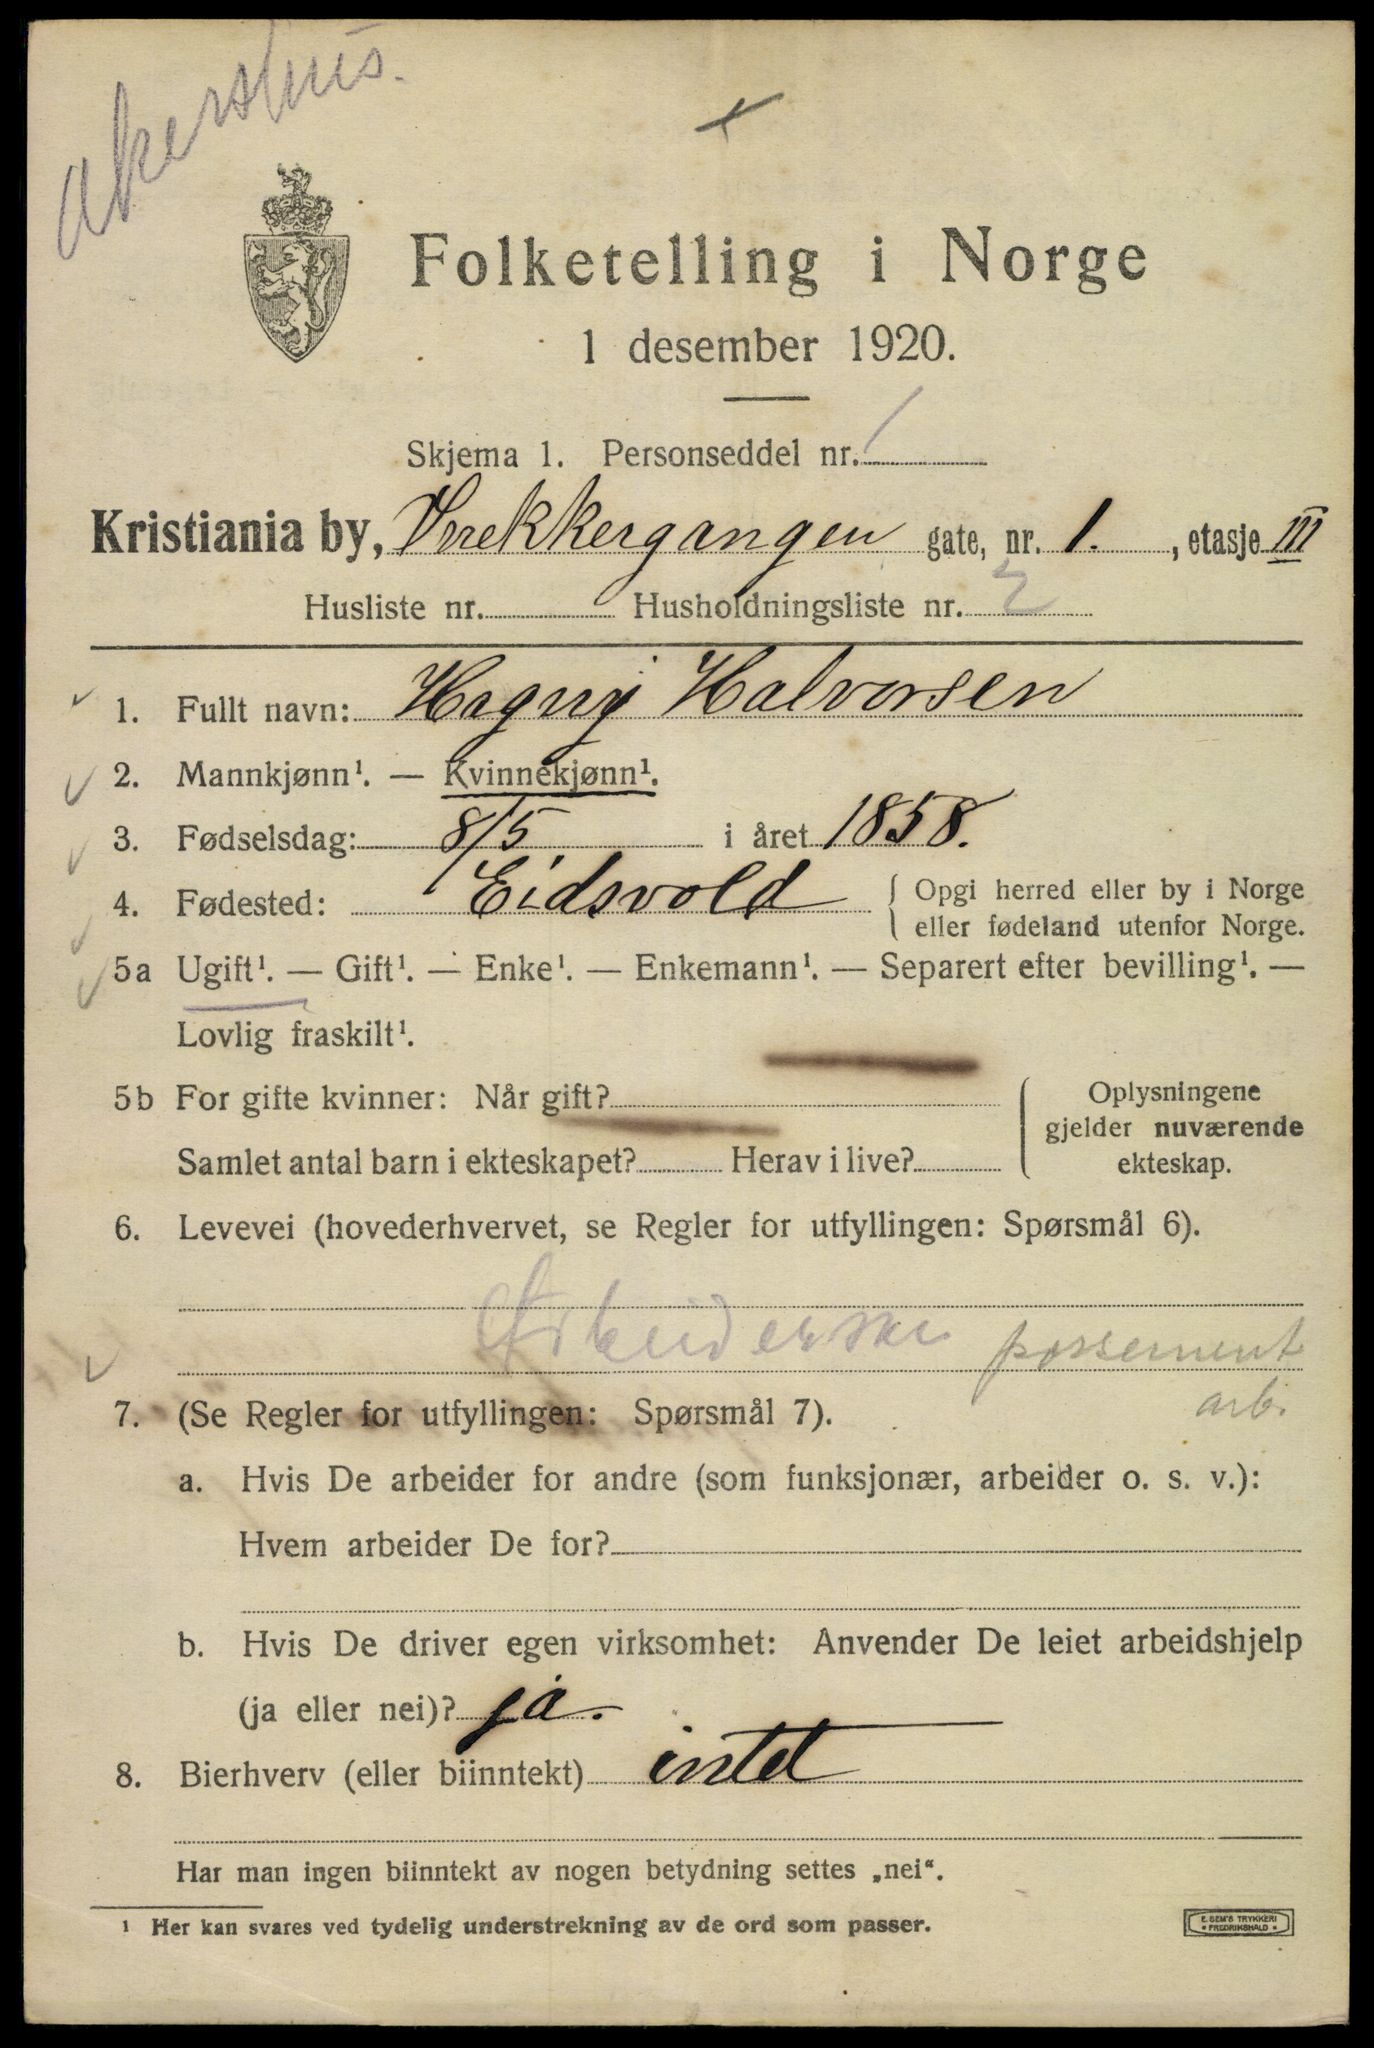 Akershus.
Folketelling i Norge
1 desember 1920.
Skjema 1. Personseddel nr. 1
Kristiania by, Vrekkergangen gate, nr. 1., etasje III
Husliste nr. Husholdningsliste nr. 2
1. Fullt navn: Hagny Halvorsen
2. Mannkjønn¹. — Kvinnekjønn¹.
3. Fødselsdag: 8/5 i året 1858.
4. Fødested: Eidsvold { Opgi herred eller by i Norge
eller fødeland utenfor Norge.
5a Ugift¹. — Gift¹. — Enke¹. — Enkemann¹. — Separert efter bevilling¹. —
Lovlig fraskilt¹.
5b For gifte kvinner: Når gift? Oplysningene
gjelder nuværende
Samlet antal barn i ekteskapet? Herav i live? ekteskap.
6. Levevei (hovederhvervet, se Regler for utfyllingen: Spørsmål 6).
Arbeiderske possement
arb.
7. (Se Regler for utfyllingen: Spørsmål 7).
a. Hvis De arbeider for andre (som funksjonær, arbeider o. s. v.):
Hvem arbeider De for?
b. Hvis De driver egen virksomhet: Anvender De leiet arbeidshjelp
(ja eller nei)? ja.
8. Bierhverv (eller biinntekt) intet
Har man ingen biinntekt av nogen betydning settes „nei“.
¹ Her kan svares ved tydelig understrekning av de ord som passer.
E. SEM'S TRYKKERI
* FREDRIKSHALD *